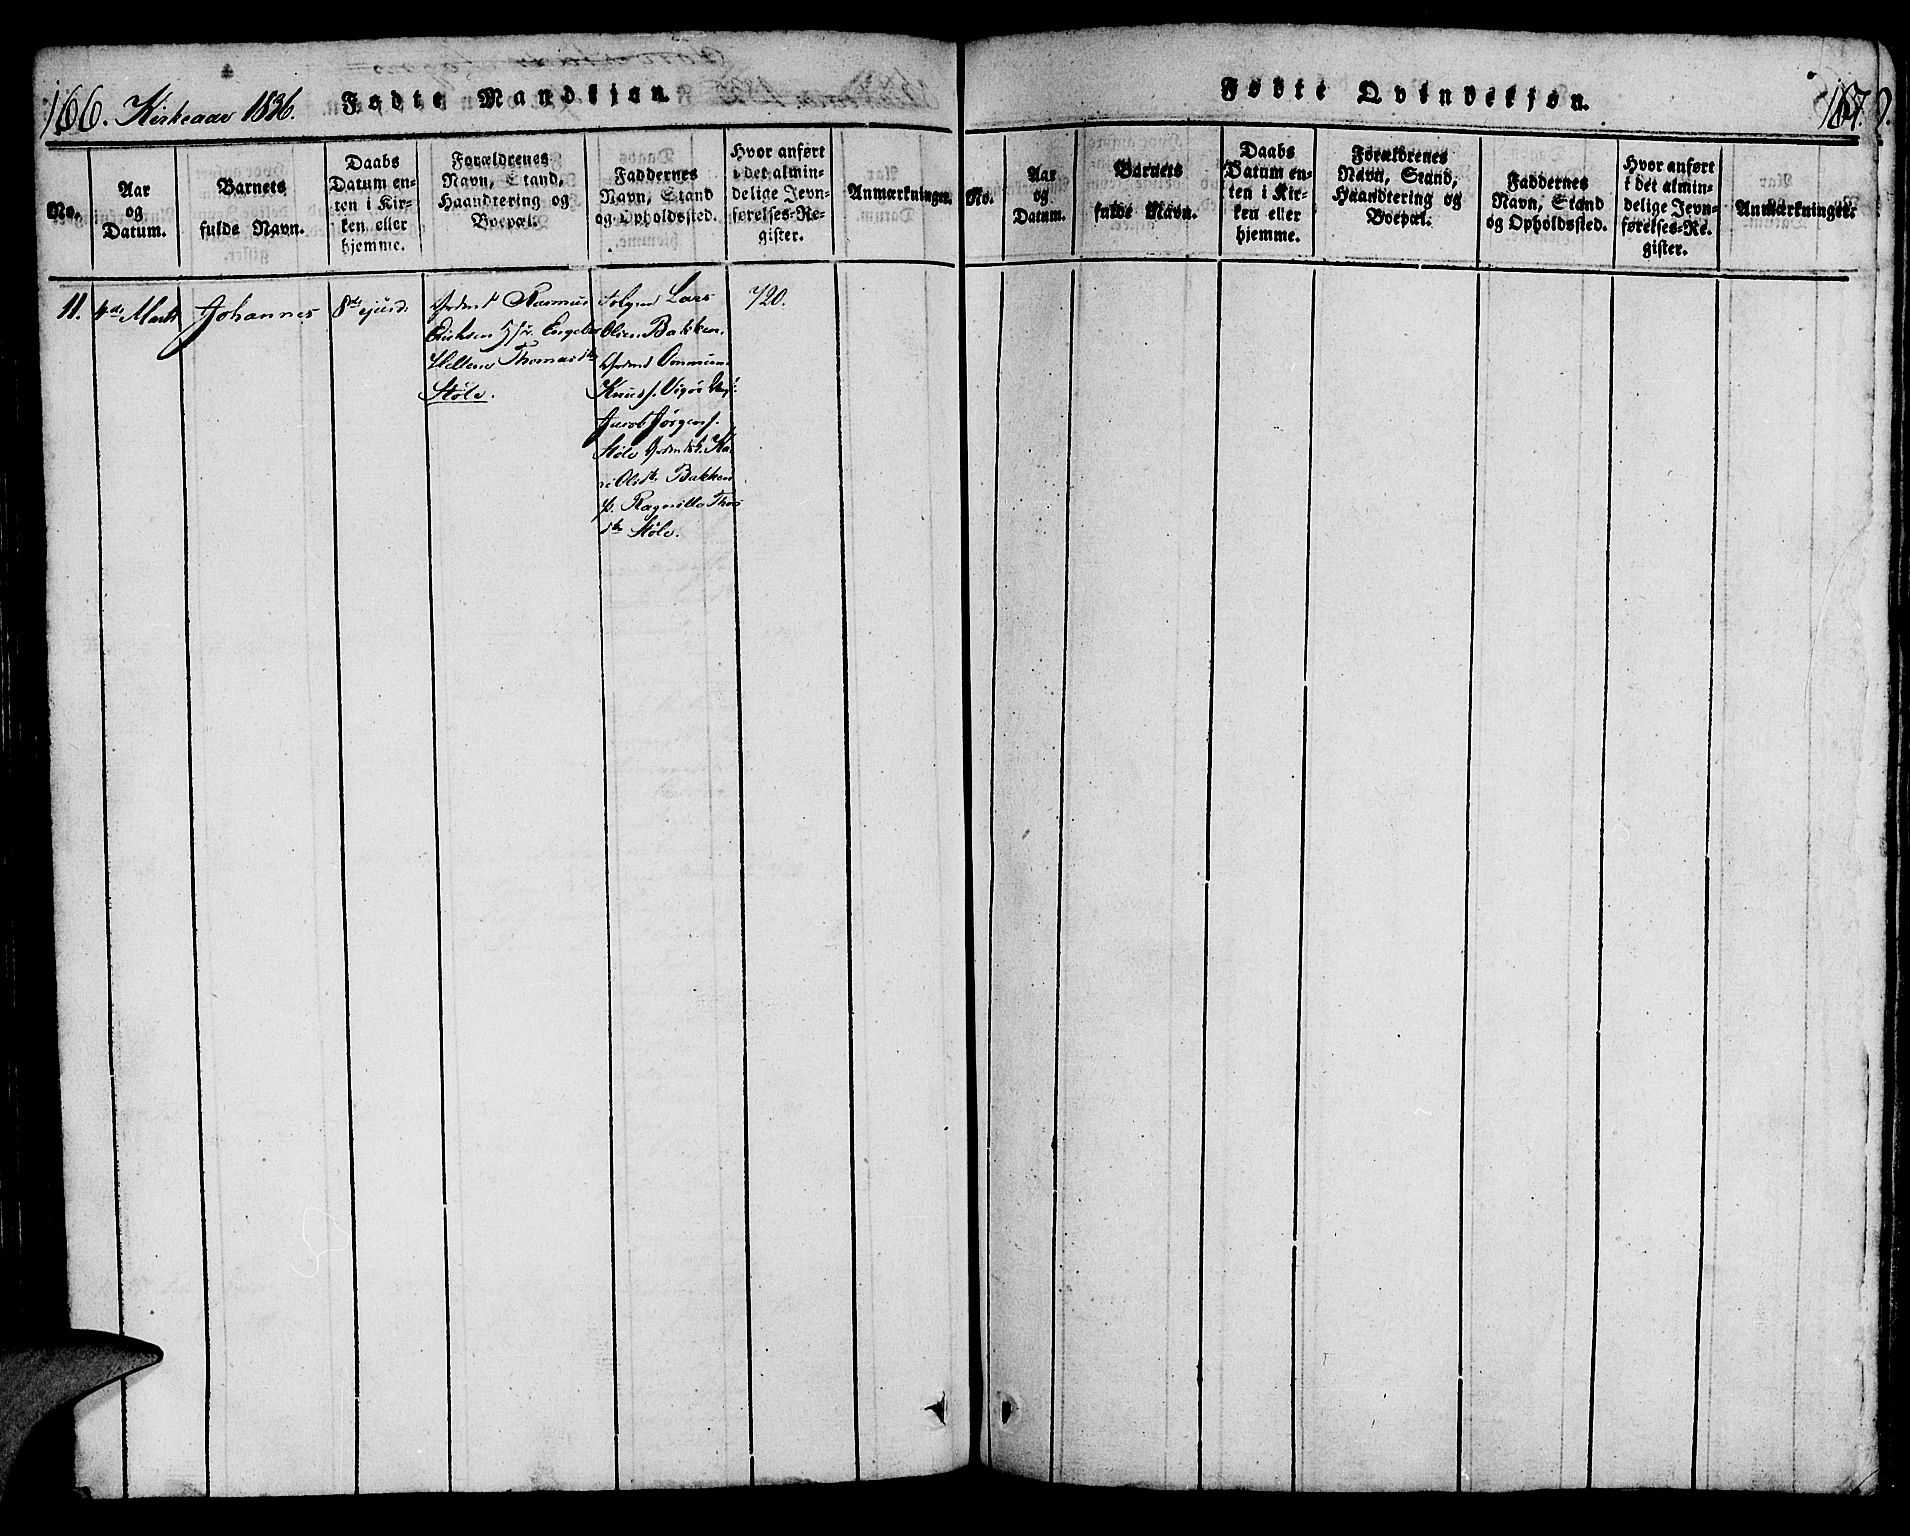 166. Kirkeaar 1836. Fødte Mandkjøn.
No.
Aar
og
Datum.
Barnets
fulde Navn.
Daabs
Datum en-
ten i Kir-
ken eller
hjemme.
Forældrenes
Navn, Stand,
Haandtering og
Boepæl.
Faddernes
Navn, Stand
og Opholdssted.
Hvor anført
i det almin-
delige Jevn-
førelses-Re-
gister.
Anmærkninger.
11.
4de Marts
Johannes
8de ejusd.
Rasmus
Eriksen
Thomasdtr
Støle.
Lars
Olsen Bakken.
Knuds. Vigøe
Jacob Jørgens.
Støle
Olsdtr Bakken
Ragnilla
dtr Støle.
720.
Fødte Qvindekjøn.
167.
No.
Aar
og
Datum.
Barnets
fulde Navn.
Daabs
Datum en-
ten i Kir-
ken eller
hjemme.
Forældrenes
Navn, Stand,
Haandtering og
Boepæl.
Faddernes
Navn, Stand
og Opholdssted.
Hvor anført
i det almin-
delige Jevn-
førelses-Re-
gister.
Anmærkninger.